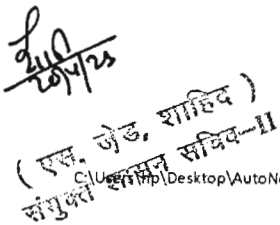 20/4/23
( एस. जेड. शाहिद )
संयुक्त शासन सचिव-II
C:\Users\hp\Desktop\AutoNo